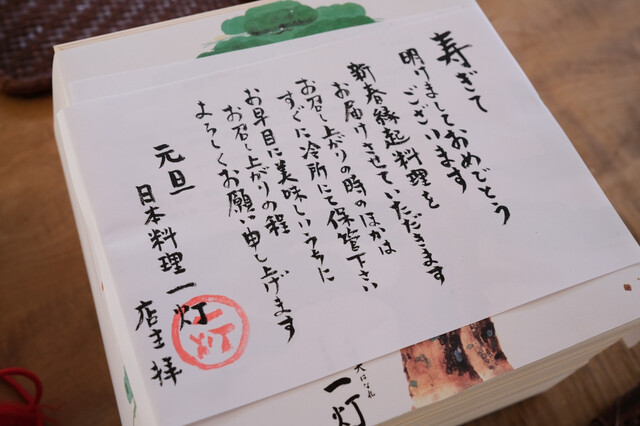 寿ぎて
明けましておめでとう
ございます
新春縁起料理を
お届けさせていただきます
お召し上がりの時のほかは
すぐに冷所にて保管下さい
お早目に美味しいうちに
お召し上がりの程
よろしくお願い申し上げます
元旦
日本料理一灯
店主拝
一灯
一灯